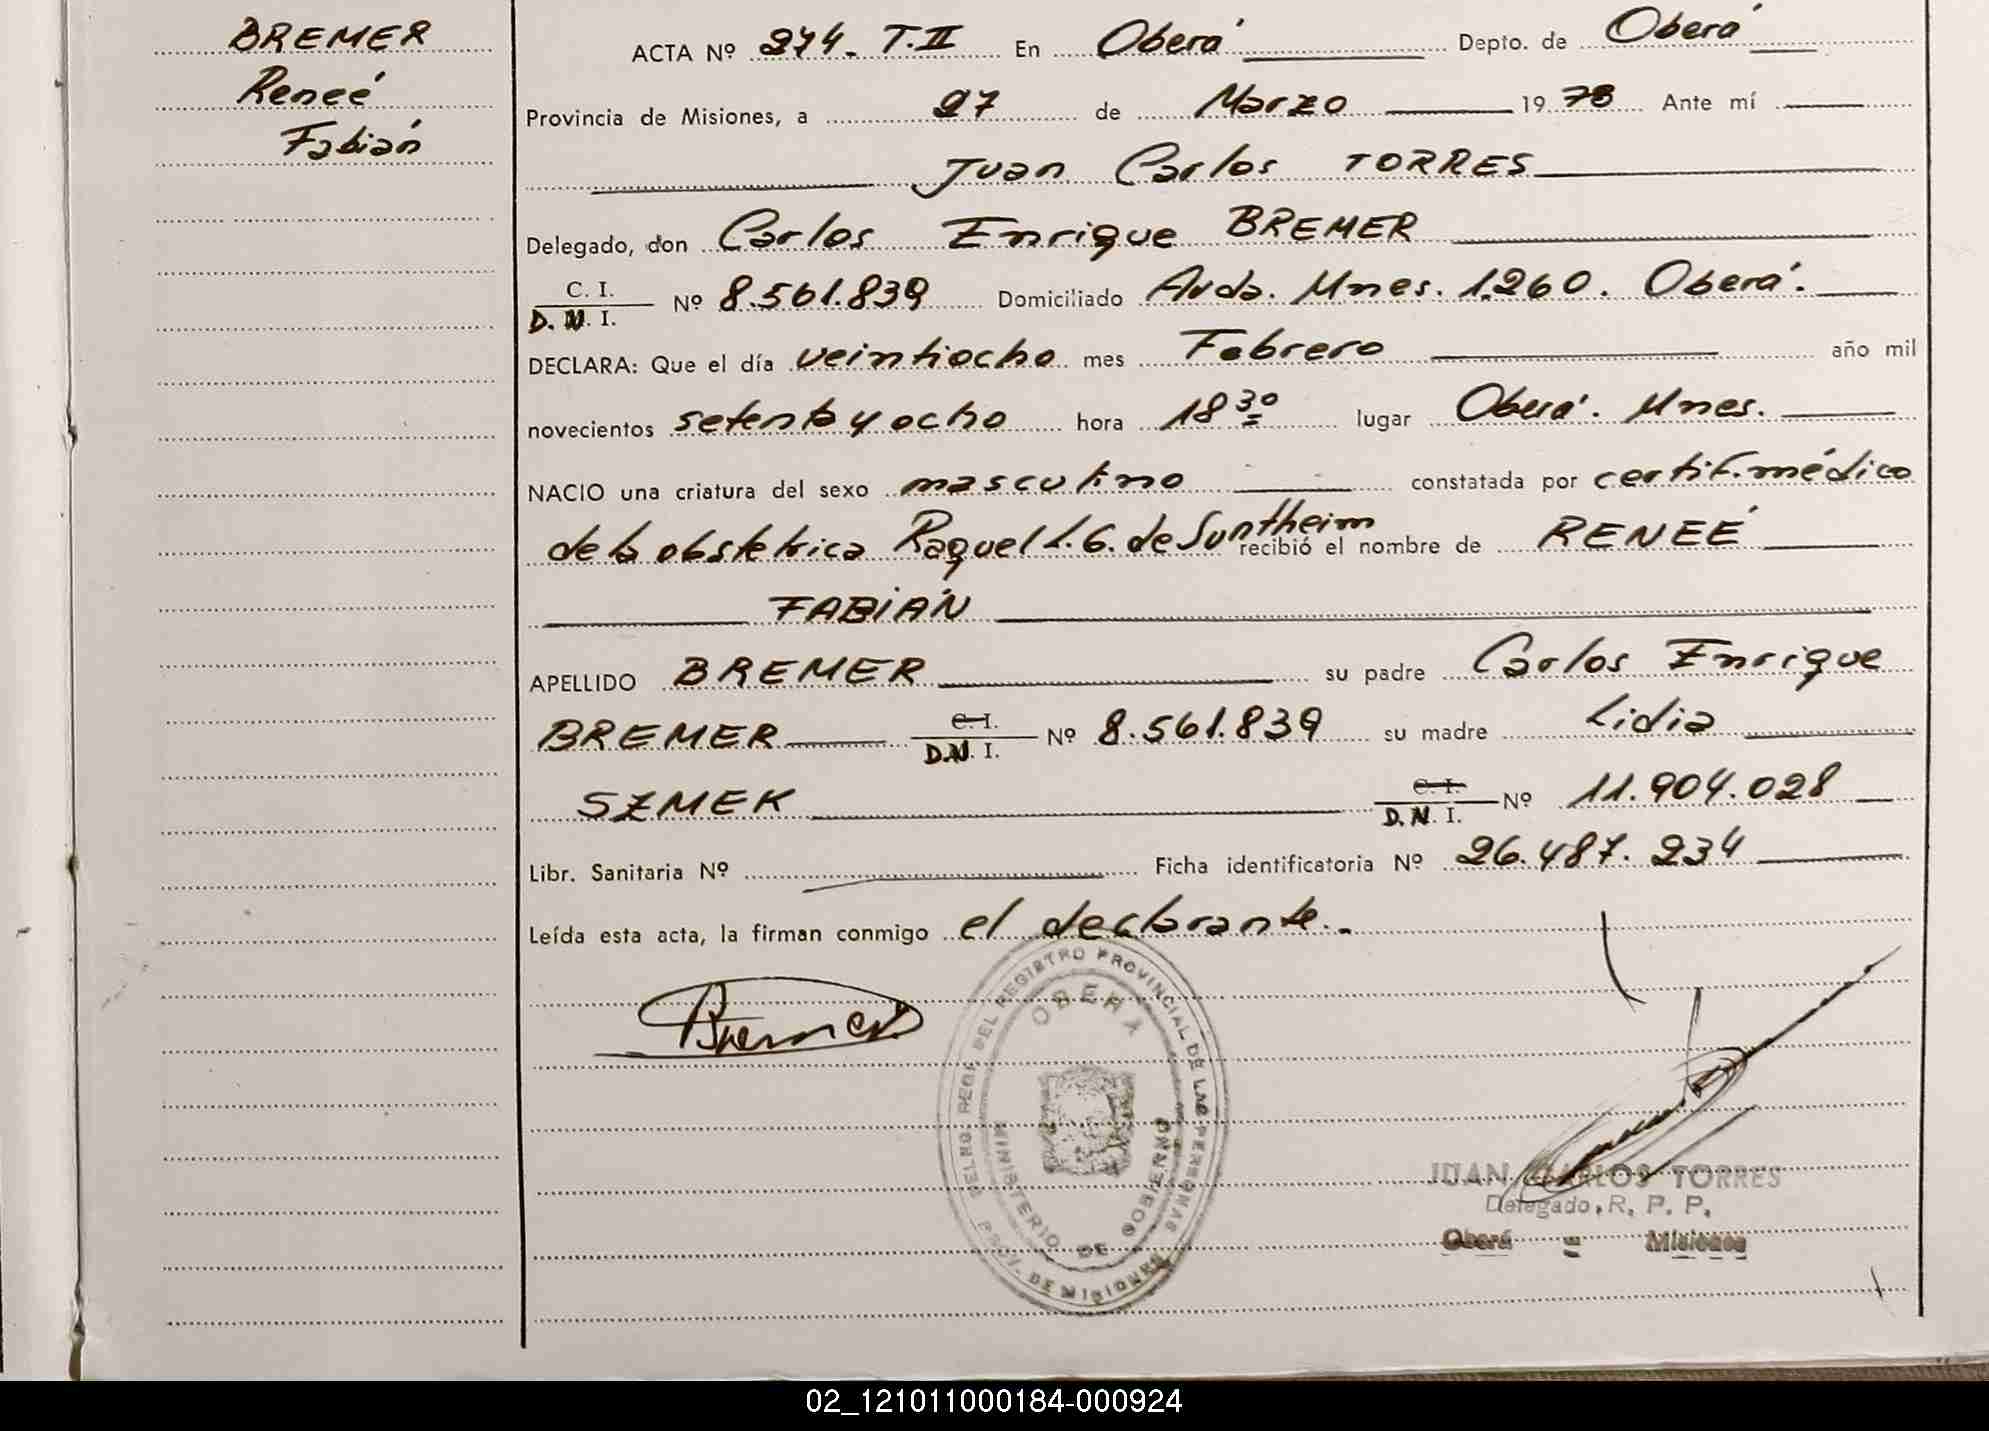 BREMER
Reneé
Fabián
ACTA Nº 274. T.II En Oberá Depto. de Oberá
Provincia de Misiones, a 27 de Marzo 1978 Ante mí
Juan Carlos TORRES
Delegado, don Carlos Enrique BREMER
C. I.
D. N. I. Nº 8.561.839 Domiciliado Avda. Mnes. 1.260. Oberá.
DECLARA: Que el día veintiocho mes Febrero año mil
novecientos setenta y ocho hora 18 30 lugar Oberá. Mnes.
NACIO una criatura del sexo masculino constatada por certif. médico
de la obstetrica Raquel L. G. de Suntheim recibió el nombre de RENEÉ
FABIÁN
APELLIDO BREMER su padre Carlos Enrique
BREMER C. I. D.N. I. Nº 8.561.839 su madre Lidia
SZMEK C. I. D. N. I. Nº 11.904.028
Libr. Sanitaria Nº Ficha identificatoria Nº 26.487.234
Leída esta acta, la firman conmigo el declarante..
Bremer
DEL REGISTRO PROVINCIAL DE LAS PERSONAS
OBERÁ
MINISTERIO DE GOBIERNO
PROV. DE MISIONES
JUAN CARLOS TORRES
Delegado, R. P. P.
Oberá - Misiones
02_121011000184-000924